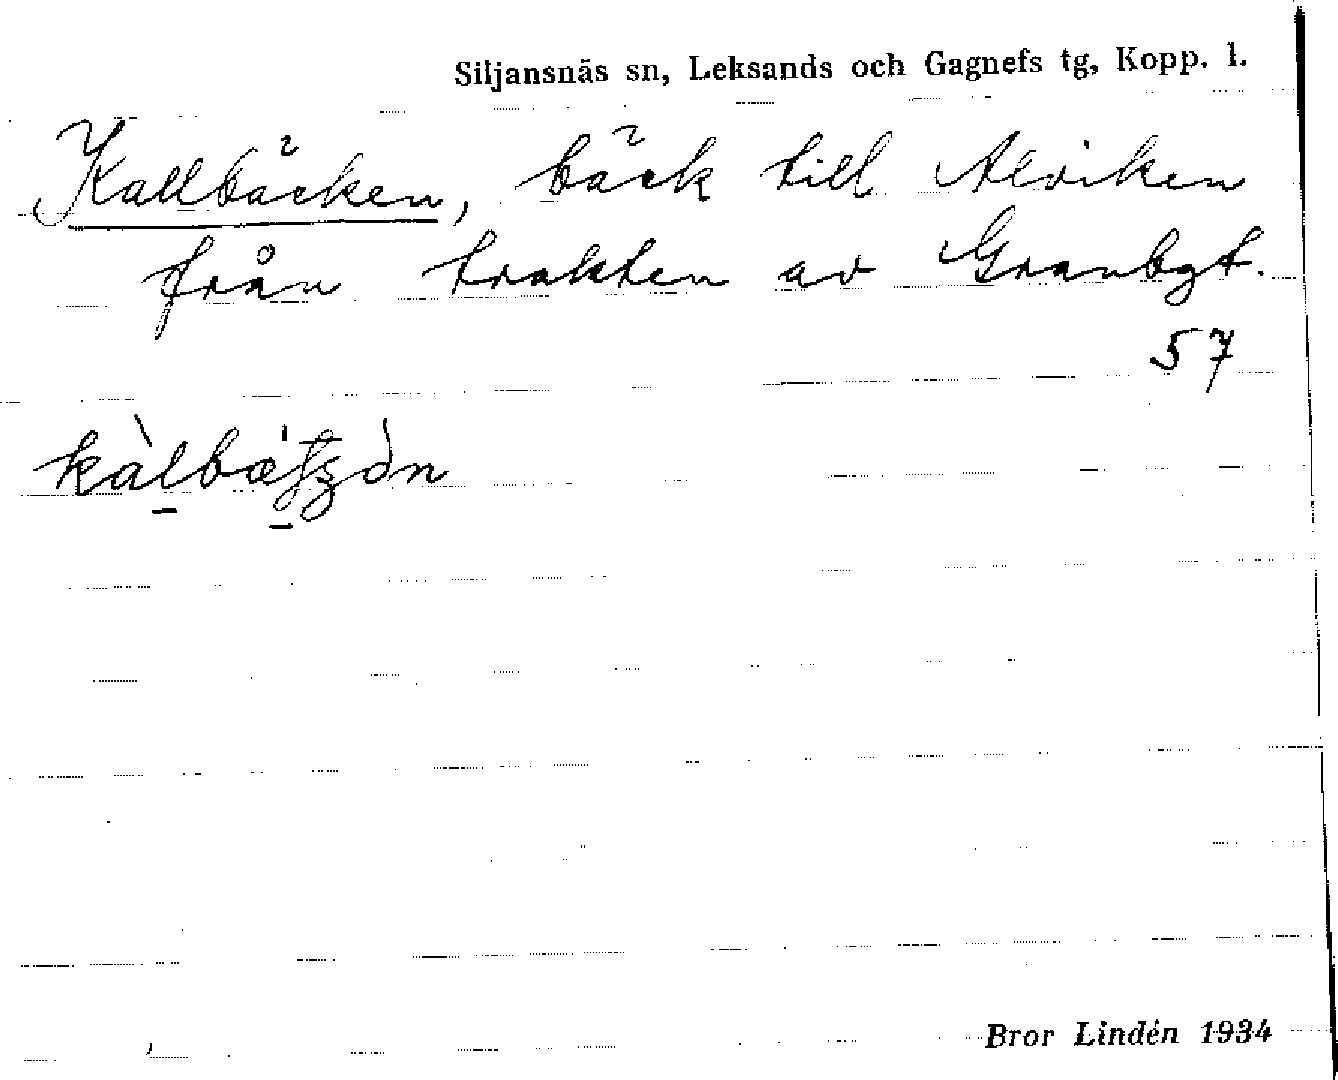 Siljansnäs sn, Leksands och Gagnefs tg, Kopp. l.
Kallbäcken, bäck till Alviken
från trakten av Granbgt.
57
Bror Lindén 1934